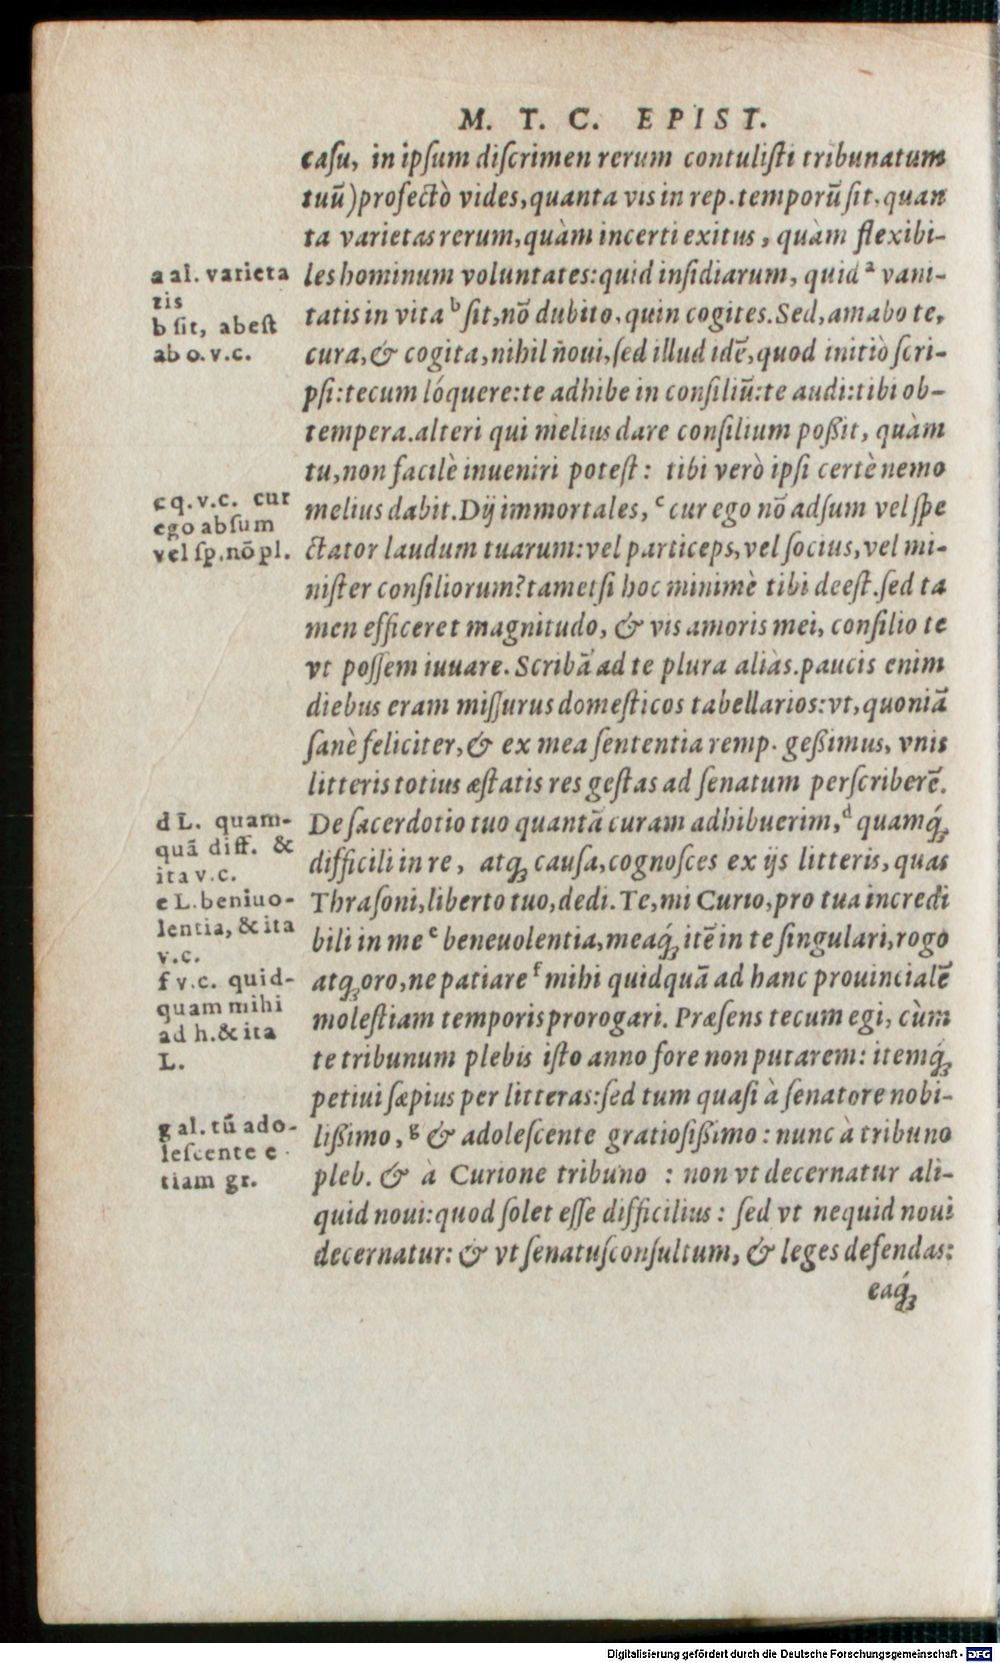 M. T. C. EPIST.
caſu, in ipſum diſcrimen rerum contuliſti tribunatum
tuū) profectò vides, quanta vis in rep. temporū ſit, quan
ta varietas rerum, quàm incerti exitus, quàm flexibi-
les hominum voluntates: quid inſidiarum, quid ᵃ vani-
tatis in vita ᵇ ſit, nō dubito, quin cogites. Sed, amabo te,
cura, & cogita, nihil ñoui, ſed illud idē, quod initiò ſcri-
pſi: tecum lóquere: te adhibe in conſiliū: te audi: tibi ob-
tempera. alteri qui mèlius dare conſilium poßit, quàm
tu, non facilè inueniri poteſt: tibi verò ipſi certè nemo
melius dabit. Dij immortales, ᶜ cur ego nō adſum vel ſpe
ctator laudum tuarum: vel particeps, vel ſocius, vel mi-
niſter conſiliorum? tametſi hoc minimè tibi deeſt. ſed ta
men efficeret magnitudo, & vis amoris mei, conſilio te
vt poſſem iuuare. Scribā ad te plura aliàs. paucis enim
diebus eram miſſurus domeſticos tabellarios: vt, quoniā
ſanè feliciter, & ex mea ſententia remp. geßimus, vnis
litteris totius æſtatis res geſtas ad ſenatum perſcriberē.
De ſacerdotio tuo quantā curam adhibuerim, ᵈ quamq́;
difficili in re, atq; cauſa, cognoſces ex ijs litteris, quas
Thraſoni, liberto tuo, dedi. Te, mi Curio, pro tua incredi
bili in me ᵉ beneuolentia, meaq́; itē in te ſingulari, rogo
atq; oro, ne patiare ᶠ mihi quidquā ad hanc prouincialē
moleſtiam temporis prorogari. Præſens tecum egi, cùm
te tribunum plebis iſto anno fore non putarem: itemq́;
petiui ſæpius per litteras: ſed tum quaſi à ſenatore nobi-
lißimo, ᵍ & adoleſcente gratioſißimo: nunc à tribuno
pleb. & à Curione tribuno : non vt decernatur ali-
quid noui: quod ſolet eſſe difficilius: ſed vt nequid noui
decernatur: & vt ſenatuſconſultum, & leges defendas:
eaq́;
a al. varieta
tis
b ſit, abeſt
ab o. v.c.
c q. v.c. cur
ego abſum
vel ſp. nō pl.
d L. quam-
quā diff. &
ita v.c.
e L. beniuo-
lentia, & ita
v.c.
f v.c. quid-
quam mihi
ad h. & ita
L.
g al. tū ado-
leſcente e
tiam gr.
Digitalisierung gefördert durch die Deutsche Forschungsgemeinschaft - DFG